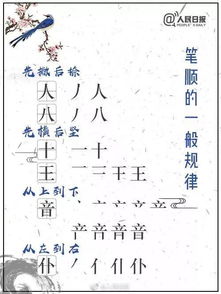 人民日报
PEOPLE'S DAILY
笔顺的一般规律
先撇后捺
人 丿 人
八 丿 八
先横后竖
十 一 十
王 一 二 三 王
从上到下
音
音 音 音 音
从左到右
仆 丿 亻 仆 仆